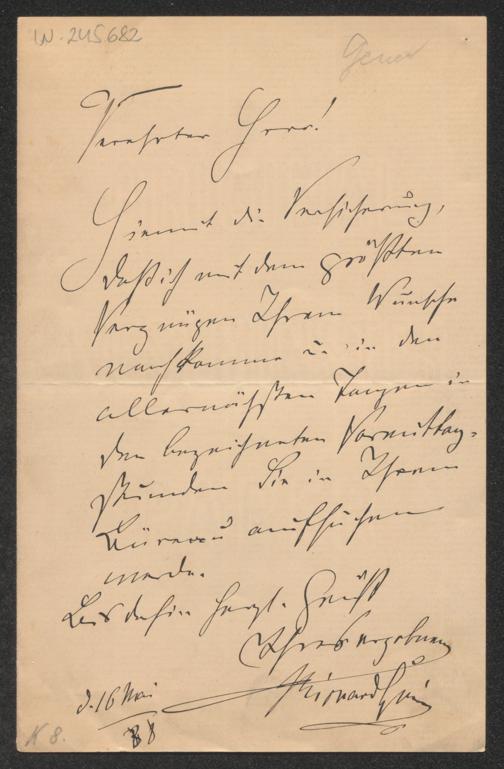 IN. 245.682
Genée
Verehrter Herr!
Hiemit die Versicherung,
daß ich mit dem größten
Vergnügen Ihrem Wunsche
nachkomme u. in den
allernächsten Tagen in
den bezeichneten Vormittag-
stunden Sie in Ihrem
Büreau aufsuchen
werde.
Bis dahin herzl. Grüßt
Ihr ergebener
Richard
d. 16 Mai
88
N 8.